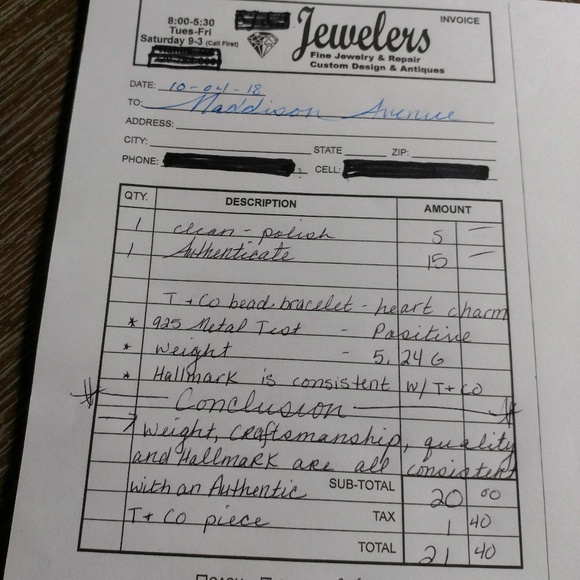 8:00-5:30
Tues-Fri
Saturday 9-3 (Call First)
Jewelers
INVOICE
Fine Jewelry & Repair
Custom Design & Antiques
DATE: 10-04-18
TO: Maddison Avenue
ADDRESS:
CITY: STATE ZIP:
PHONE: CELL:
QTY. DESCRIPTION AMOUNT
1 clean - polish 5 —
1 Authenticate 15 —
T + CO bead bracelet - heart charm
* 925 Metal Test - Positive
* Weight - 5.24 G
* Hallmark is consistent W/ T + CO
Conclusion
→ Weight, craftsmanship, quality
and Hallmark are all consistent
with an Authentic SUB-TOTAL 20 00
T + CO piece TAX 1 40
TOTAL 21 40